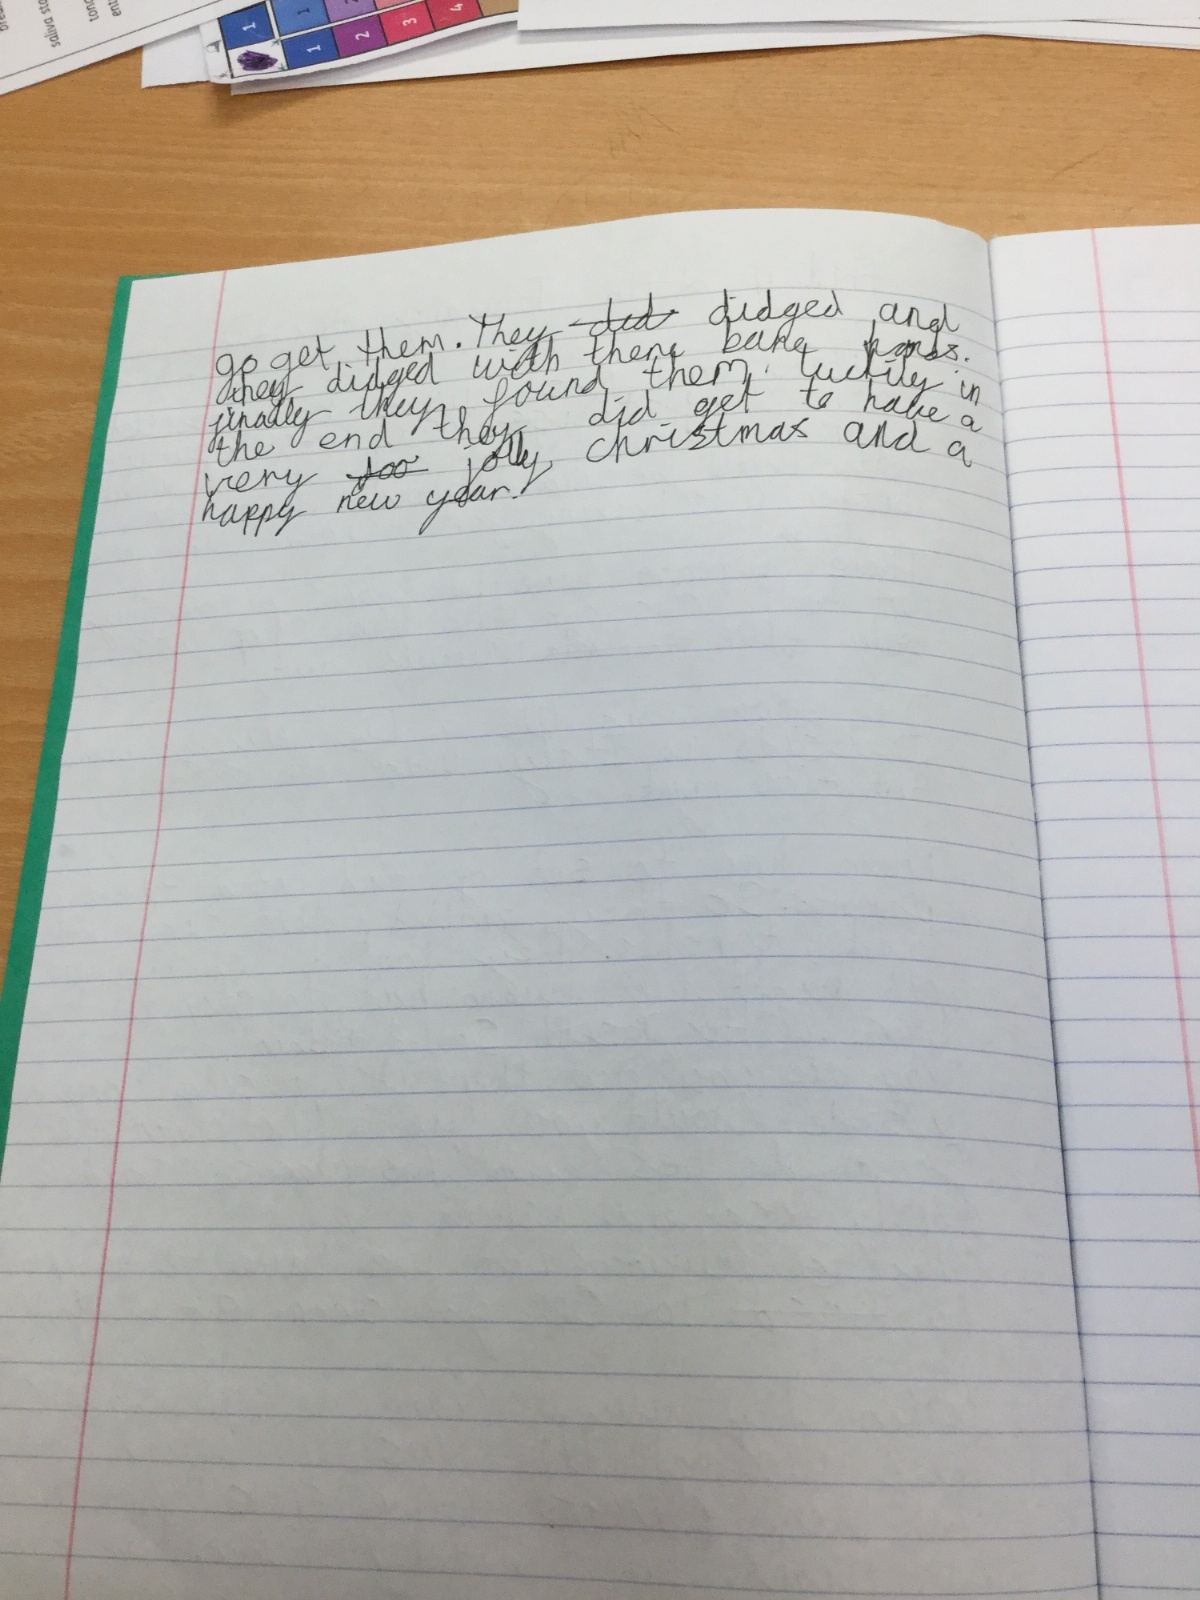 saliva sto
tong
ent
1 1 2
1 2 3 4
go get them. They did didged and
they didged with there bare hands.
finally they found them. luckily in
the end they did get to have a
very joo jolly christmas and a
happy new year.